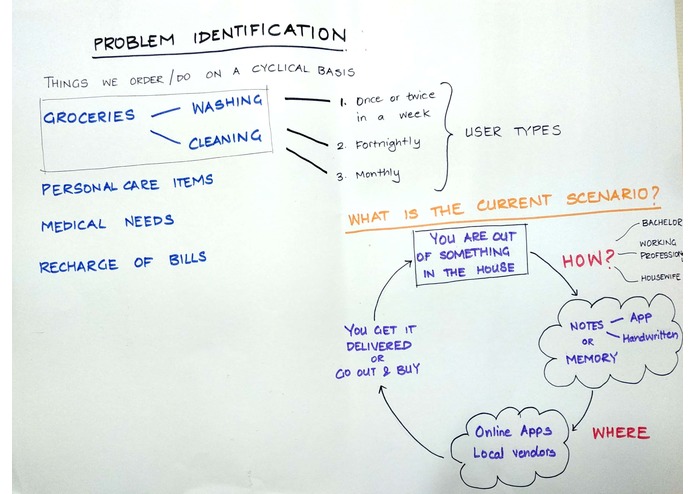 PROBLEM IDENTIFICATION
THINGS WE ORDER/DO ON A CYCLICAL BASIS
GROCERIES
WASHING
CLEANING
1. Once or twice
in a week
2. Fortnightly
3. Monthly
USER TYPES
PERSONAL CARE ITEMS
MEDICAL NEEDS
RECHARGE OF BILLS
WHAT IS THE CURRENT SCENARIO?
YOU ARE OUT
OF SOMETHING
IN THE HOUSE
HOW?
BACHELOR
WORKING
PROFESSION
HOUSEWIFE
NOTES
OR
MEMORY
App
Handwritten
WHERE
Online Apps
Local vendors
YOU GET IT
DELIVERED
OR
GO OUT & BUY